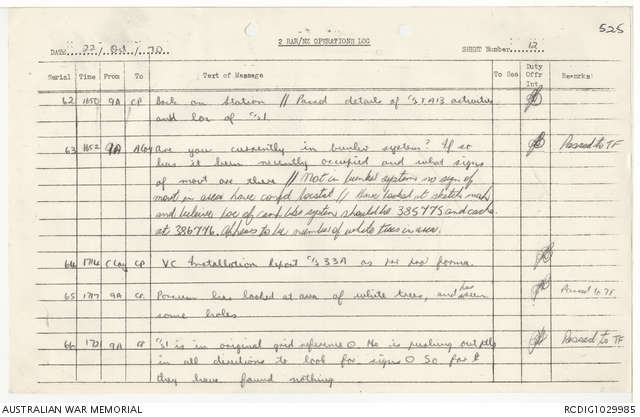 525
2 RAR/NZ OPERATIONS LOG
DATE 22 / Oct / 70 SHEET Number 12
Serial Time From To Text of Message To See Duty Offr Int. Remarks
62 1650 9A CP Back on Station // Passed details of activities
and loc of
63 1652 9A Are you currently in bunker system? If so
has it been recently occupied and what signs Passed to TF
of movt are there // Not in bunker systems no sign of
movt in area have // Have looked at sketch map
and believe loc of system should be 385775 and cache
at 386776. Appears to be number of white trees in area.
64 1714 CP VC Installation Report 33A as per pro forma.
65 1717 9A CP Possum has looked at area of white trees, and has seen
some holes
66 1721 9A CP is in original grid reference O He is pushing out
in all directions to look for signs O So far Passed to TF
they have found nothing
AUSTRALIAN WAR MEMORIAL RCDIG1029985